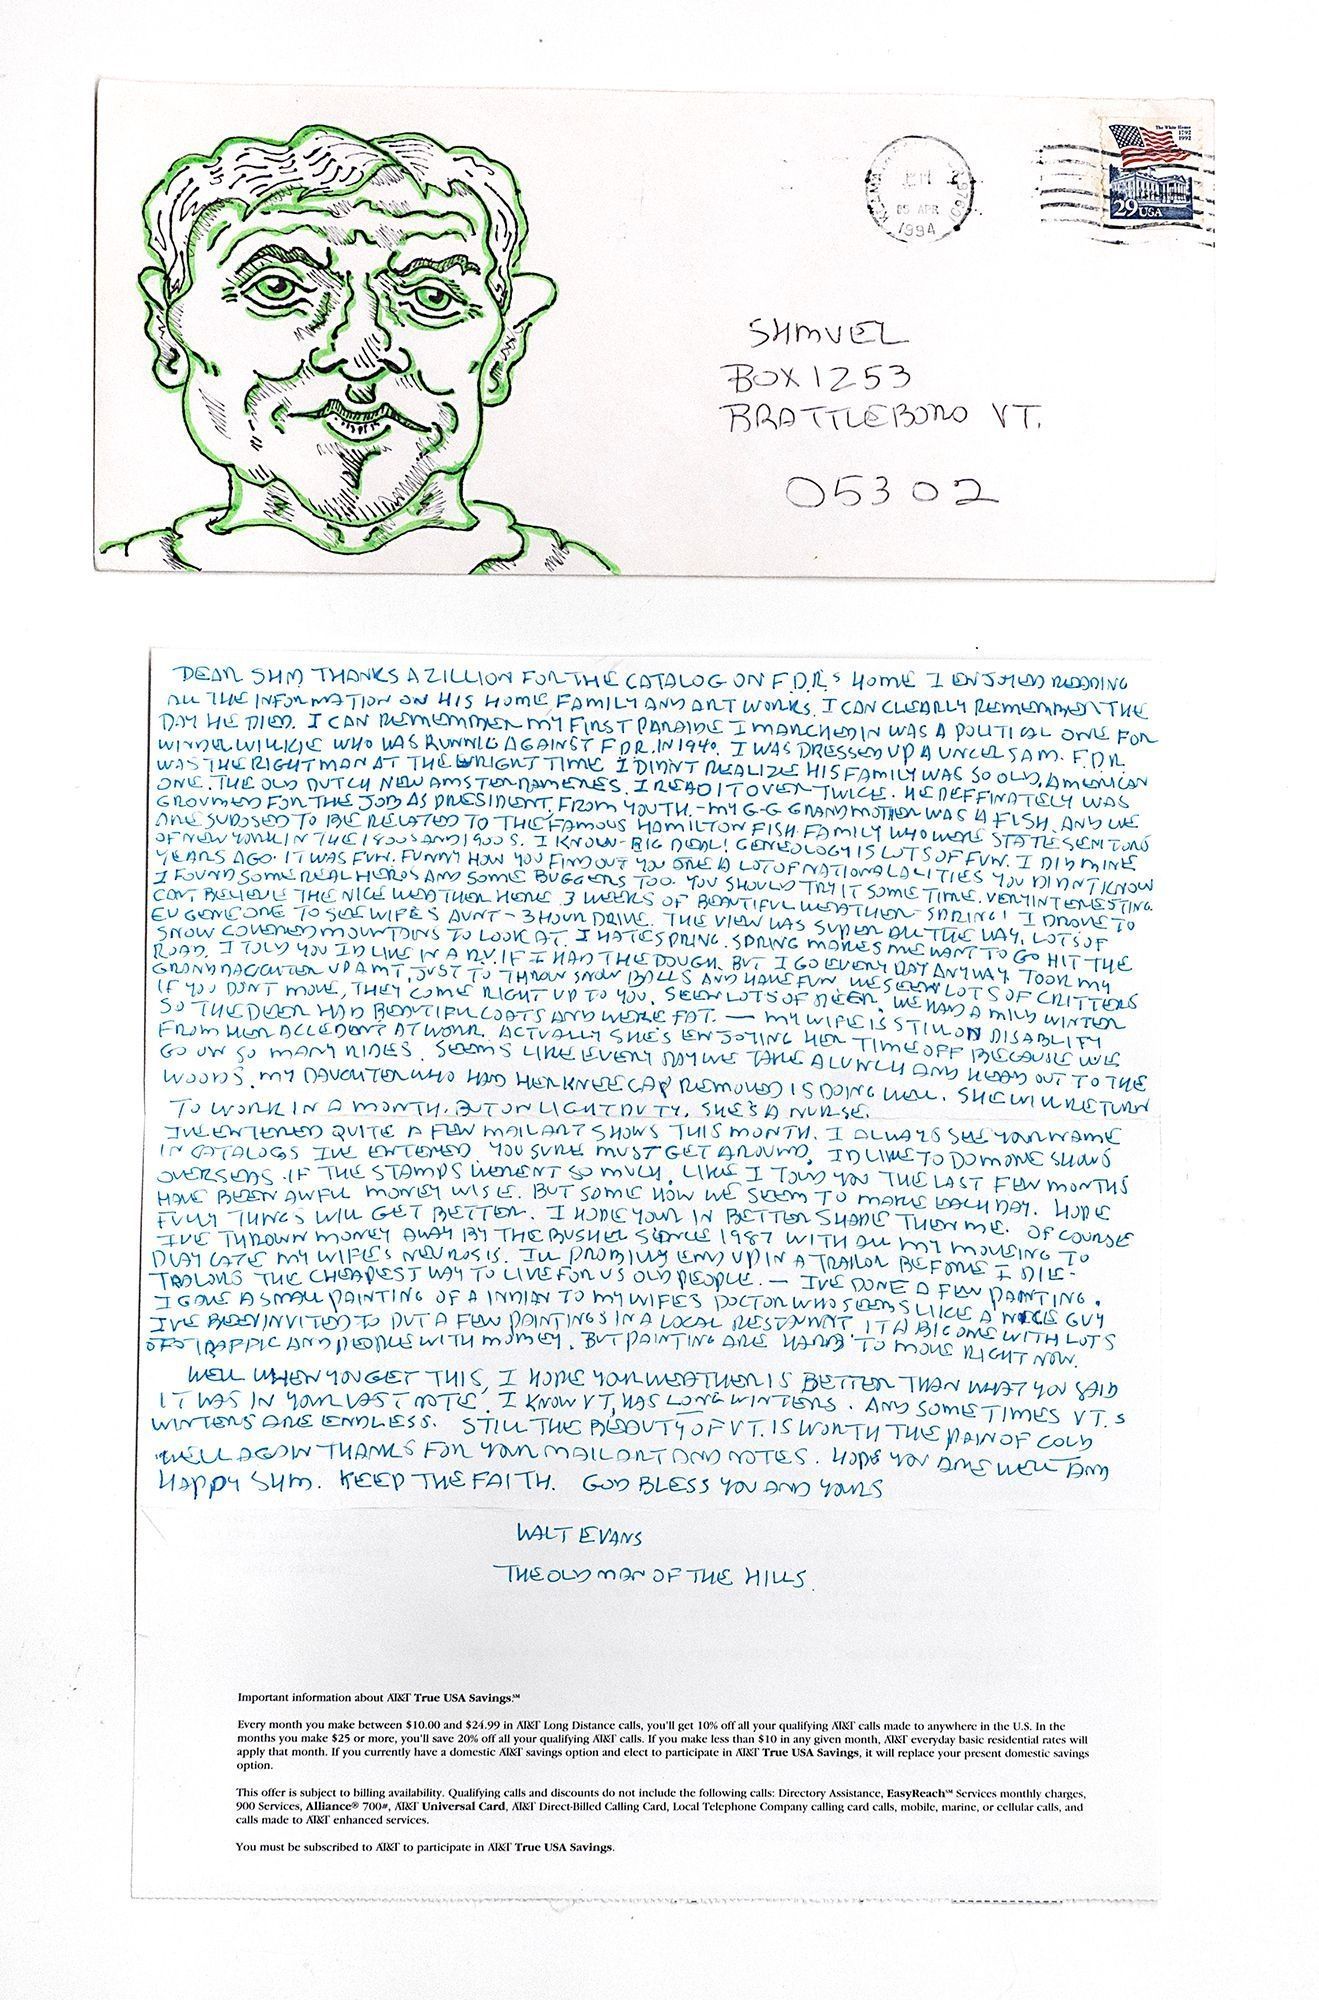 The White House
1792
1992
29 USA
05 APR
1994
SHMUEL
BOX 1253
BRATTLEBORO VT.
05302
DEAR SHM THANKS A ZILLION FOR THE CATALOG ON F.D.R.s HOME I ENJOYED READING
ALL THE INFORMATION ON HIS HOME FAMILY AND ART WORKS. I CAN CLEARLY REMEMBER THE
DAY HE DIED. I CAN REMEMMBER MY FIRST PARADE I MARCHED IN WAS A POLITICAL ONE FOR
WINDEL WILLKIE WHO WAS RUNNIG AGAINST F.D.R. IN 1940. I WAS DRESSED UP A UNCEL SAM. F.D.R
WAS THE RIGHT MAN AT THE WRIGHT TIME I DIDN'T REALIZE HIS FAMILY WAS SO OLD, AMERICAN
ONE. THE OLD DUTCH NEW AMSTERDAMENES. I READ IT OVER TWICE. HE DEFFINATELY WAS
GROUMED FOR THE JOB AS PRESIDENT. FROM YOUTH. - MY G-G GRANDMOTHER WAS A FISH. AND WE
ARE SUPOSED TO BE RELATED TO THE FAMOUS HAMILTON FISH FAMILY WHO WERE STATE SENITORS
OF NEW YORK IN THE 1800S AND 1900S. I KNOW - BIG DEAL! GENEOLOGY IS LOTS OF FUN. I DID MINE
YEARS AGO. IT WAS FUN. FUNNY HOW YOU FIND OUT YOU ARE A LOT OF NATIONALALITIES YOU DIDN'T KNOW
I FOUND SOME REAL HEROS AND SOME BUGGERS TOO. YOU SHOULD TRY IT SOME TIME. VERY INTERESTING.
CANT BELIEVE THE NICE WEATHER HERE 3 WEEKS OF BEAUTIFUL WEATHER - SPRING! I DROVE TO
EUGENE ORE TO SEE WIFE'S AUNT - 3 HOUR DRIVE. THE VIEW WAS SUPER ALL THE WAY. LOTS OF
SNOW COVERED MOUNTAINS TO LOOK AT. I HATE SPRING. SPRING MAKES ME WANT TO GO HIT THE
ROAD. I TOLD YOU ID LIVE IN A R.V. IF I HAD THE DOUGH. BUT I GO EVERY DAY ANYWAY. TOOK MY
GRANDDAGUTER UP A MT, JUST TO THROW SNOW BALLS AND HAVE FUN WE SEEN LOTS OF CRITTERS
IF YOU DON'T MOVE, THEY COME RIGHT UP TO YOU. SEEN LOTS OF DEER. WE HAD A MILD WINTER
SO THE DEER HAD BEAUTIFUL COATS AND WERE FAT. — MY WIFE IS STILL ON DISABLITY
FROM HER ACCEDENT AT WORK. ACTUALLY SHE'S ENJOYING HER TIME OFF BECAUSE WE
GO ON SO MANY RIDES. SEEMS LIKE EVERY DAY WE TAKE A LUNCH AND HEAD OUT TO THE
WOODS. MY DAUGHTER WHO HAD HER KNEE CAP REMOVED IS DOING WELL. SHE WILL RETURN
TO WORK IN A MONTH. BUT ON LIGHT DUTY. SHE'S A NURSE.
I'VE ENTERED QUITE A FEW MAIL ART SHOWS THIS MONTH. I ALWAYS SEE YOUR NAME
IN CATALOGS I'VE ENTERED. YOU SURE MUST GET AROUND. ID LIKE TO DO MORE SHOWS
OVERSEAS. IF THE STAMPS WERENT SO MUCH. LIKE I TOLD YOU THE LAST FEW MONTHS
HAVE BEEN AWFUL MONEY WISE. BUT SOME HOW WE SEEM TO MAKE EACH DAY. HOPE
FULLY THINGS WILL GET BETTER. I HOPE YOUR IN BETTER SHAPE THEN ME. OF COURSE
I'VE THROWN MONEY AWAY BY THE BUSHEL SINCE 1987 WITH ALL MY MOVEING TO
PLAY CATE MY WIFE'S NEUROSIS. I'LL PROBILY END UP IN A TRAILOR BEFORE I DIE -
TRALORS THE CHEAPEST WAY TO LIVE FOR US OLD PEOPLE. — I'VE DONE A FEW PAINTING.
I GAVE A SMALL PAINTING OF A INDIAN TO MY WIFE'S DOCTOR WHO SEEMS LIKE A NICE GUY
I'VE BEEN INVITED TO PUT A FEW PAINTINGS IN A LOCAL RESTAURNT IT A BIG ONE WITH LOTS
OF TRAFFIC AND PEOPLE WITH MONEY. BUT PAINTING ARE HARD TO MOVE RIGHT NOW.
WELL WHEN YOU GET THIS, I HOPE YOUR WEATHER IS BETTER THAN WHAT YOU SAID
IT WAS IN YOUR LAST NOTE. I KNOW VT, HAS LONG WINTERS. AND SOME TIMES VT.s
WINTERS ARE ENDLESS. STILL THE BEAUTY OF VT. IS WORTH THE PAIN OF COLD
WELL AGAIN THANKS FOR YOUR MAIL ART AND NOTES. HOPE YOU ARE WELL AND
HAPPY SHM. KEEP THE FAITH. GOD BLESS YOU AND YOURS
WALT EVANS
THE OLD MAN OF THE HILLS.
Important information about AT&T True USA Savings.℠
Every month you make between $10.00 and $24.99 in AT&T Long Distance calls, you'll get 10% off all your qualifying AT&T calls made to anywhere in the U.S. In the
months you make $25 or more, you'll save 20% off all your qualifying AT&T calls. If you make less than $10 in any given month, AT&T everyday basic residential rates will
apply that month. If you currently have a domestic AT&T savings option and elect to participate in AT&T True USA Savings, it will replace your present domestic savings
option.
This offer is subject to billing availability. Qualifying calls and discounts do not include the following calls: Directory Assistance, EasyReach℠ Services monthly charges,
900 Services, Alliance® 700#, AT&T Universal Card, AT&T Direct-Billed Calling Card, Local Telephone Company calling card calls, mobile, marine, or cellular calls, and
calls made to AT&T enhanced services.
You must be subscribed to AT&T to participate in AT&T True USA Savings.